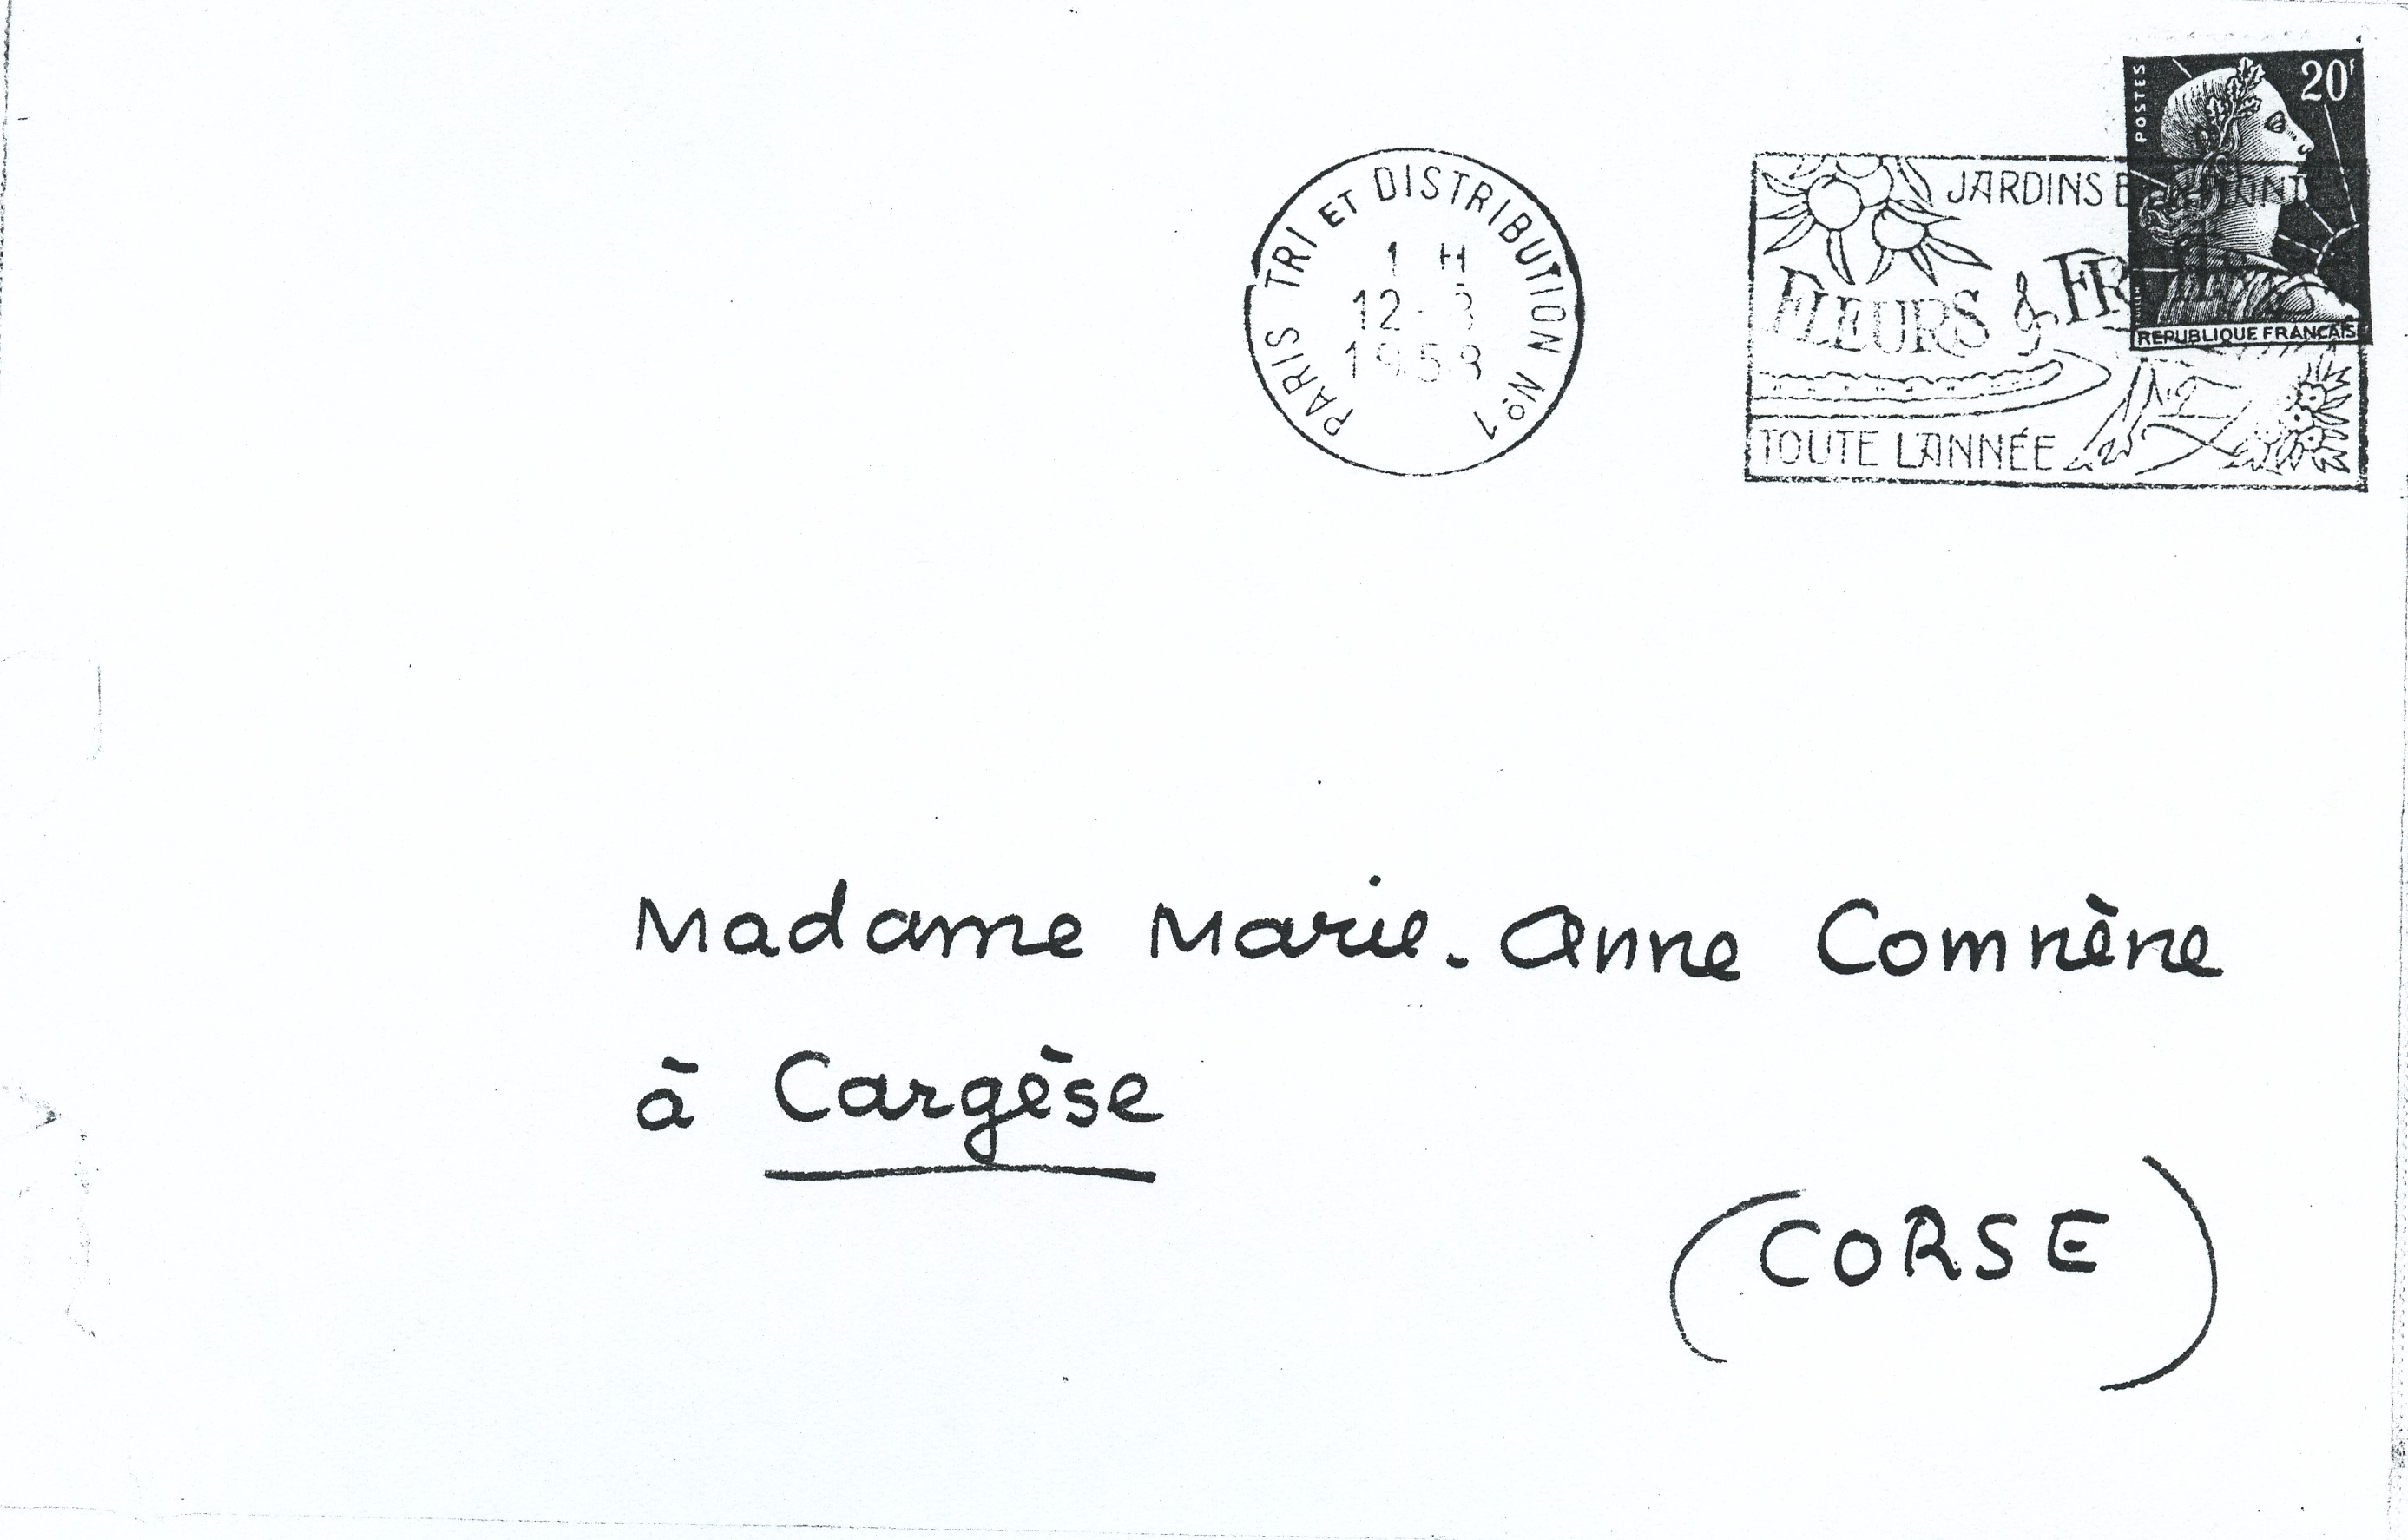 POSTES
20F
PARIS TRI ET DISTRIBUTION No1
1 H
12-
1958
JARDINS
FLEURS &
TOUTE L'ANNÉE
REPUBLIQUE FRANCAISE
Madame Marie-Anne Comnène
à Cargèse
(CORSE)